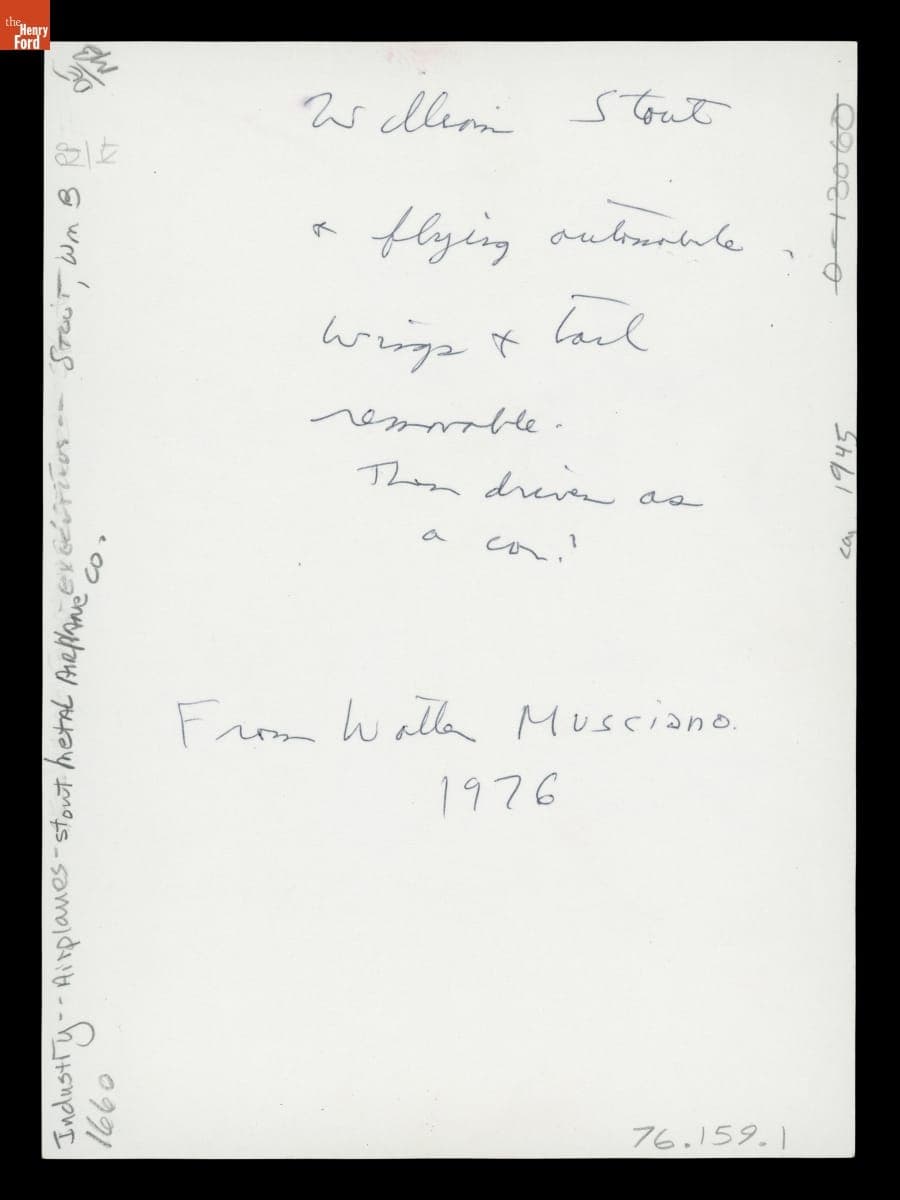 the
Henry
Ford
William Stout
& flying automobile.
Wings & tail
removable.
Then driven as
a car!
From Walter Musciano.
1976
76.159.1
Industry -- Airplanes - Stout Metal Airplane Co.
1660
Stout, Wm B
0-13060
ca. 1945